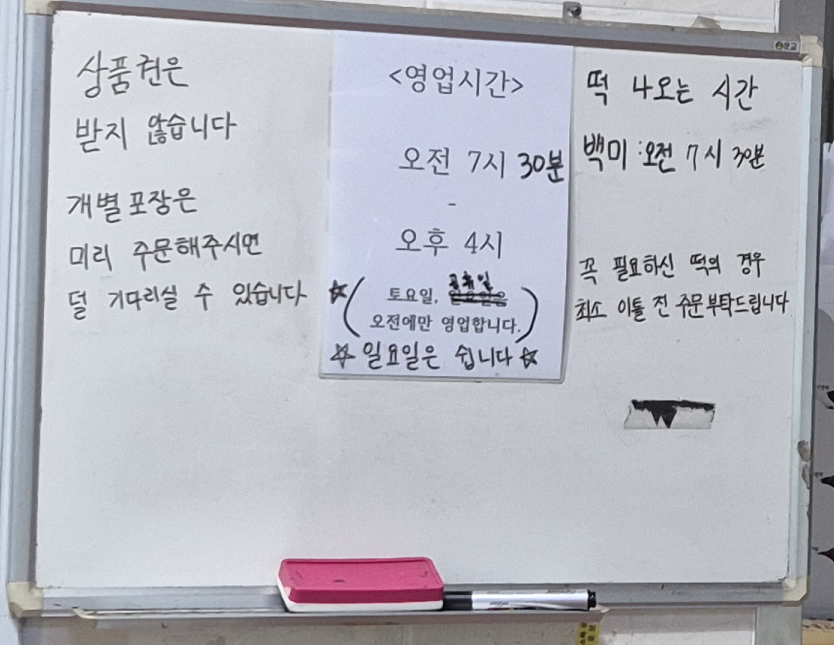 상품권은
받지 않습니다
개별포장은
미리 주문해주시면
덜 기다리실 수 있습니다
<영업시간>
오전 7시 30분
-
오후 4시
공휴일
(토요일, 일요일은
오전에만 영업합니다.)
☆ 일요일은 쉽니다 ☆
떡 나오는 시간
백미 : 오전 7시 30분
꼭 필요하신 떡의 경우
최소 이틀 전 주문부탁드립니다